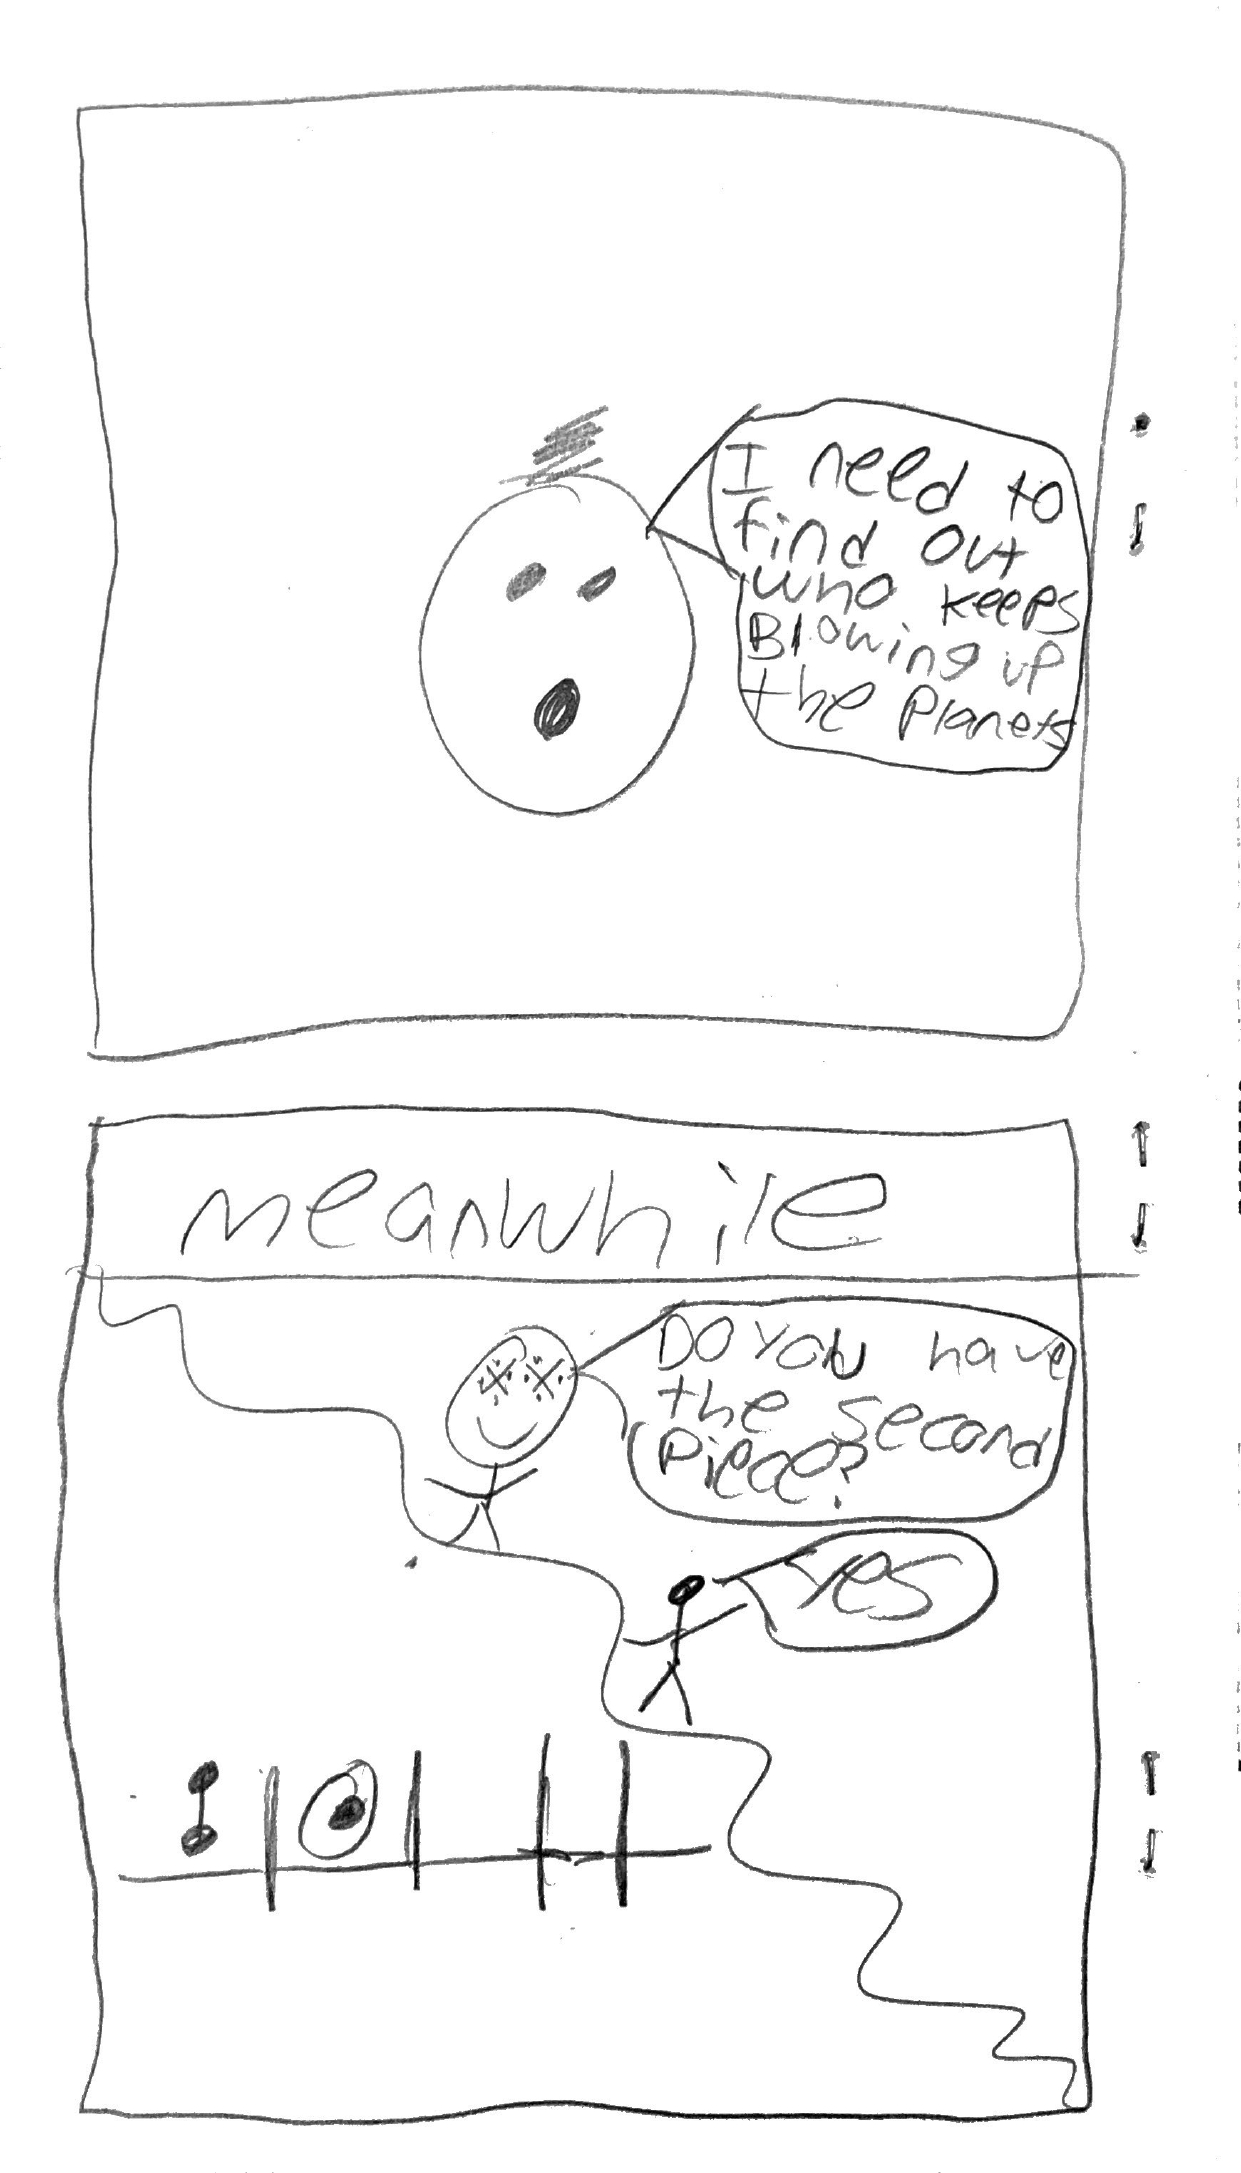 I need to
find out
who keeps
Blowing up
the Planets
meanwhile
Do you have
the second
Piece?
Yes